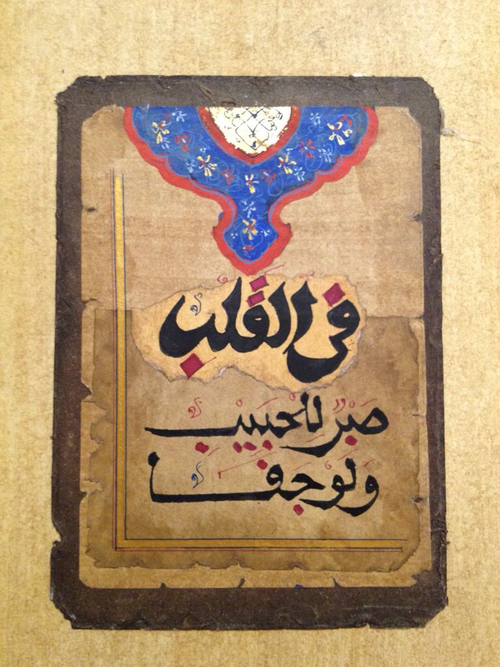 في القلب
صبرٌ للحبيب
وَلَو جفا